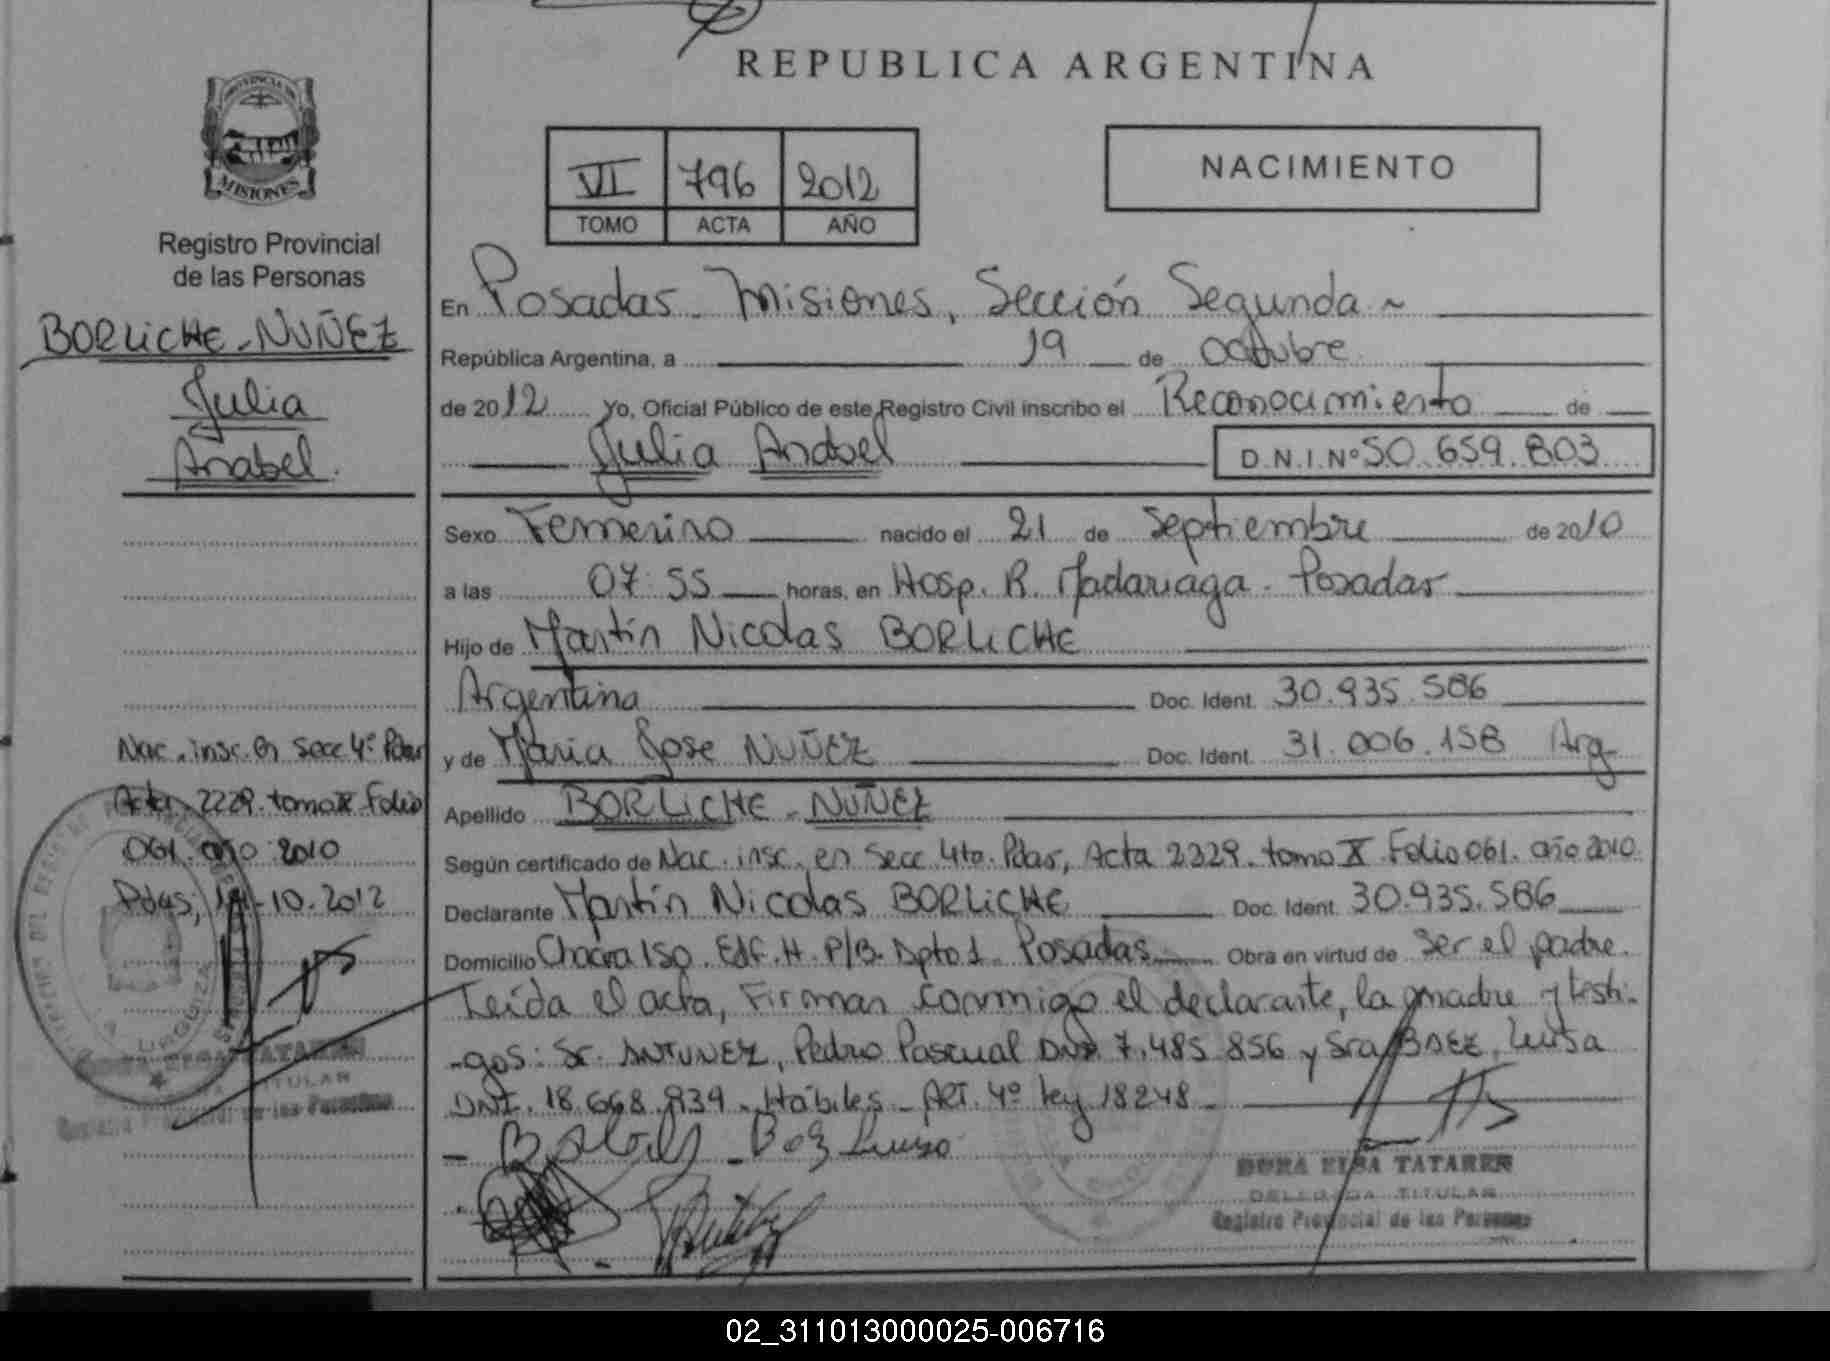 PROVINCIA DE
MISIONES
Registro Provincial
de las Personas
BORLICHE - NUÑEZ
Julia
Anabel.
Nac. insc. en secc 4º Pdas
Acta 2229. tomo X Folio
061. año 2010
Pdas, -10-2012
URQUIZA
TITULAR
REPUBLICA ARGENTINA
VI 796 2012
TOMO ACTA AÑO
NACIMIENTO
En Posadas - Misiones, Sección Segunda ~
República Argentina, a 19 de octubre
de 2012 Yo, Oficial Público de este Registro Civil inscribo el Reconocimiento de
Julia Anabel D.N.I. Nº 50.659.803
Sexo Femenino nacido el 21 de septiembre de 2010
a las 07:55 horas, en Hosp. R. Madariaga - Posadas
Hijo de Martín Nicolas BORLICHE
Argentina Doc. Ident. 30.935.586
y de Maria Jose NUÑEZ Doc. Ident. 31.006.158 Arg-
Apellido BORLICHE - NUÑEZ
Según certificado de Nac. insc. en secc 4to. Pdas, Acta 2329. tomo X Folio 061. año 2010
Declarante Martín Nicolas BORLICHE Doc. Ident. 30.935.586
Domicilio Chacra 150. Edf. H. P/B. Dpto 1. Posadas Obra en virtud de ser el padre.
Leída el acta, Firman conmigo el declarante, la madre y testi-
-gos: Sr. ANTUNEZ, Pedro Pascual DNI 7.485.856 y Sra BAEZ, Luisa
DNI. 18.668.939 - Hábiles - ART. 4º ley 18248 -
Baez Luisa
DORA ELSA TATAREN
DELEGADA TITULAR
Registro Provincial de las Personas
02_311013000025-006716